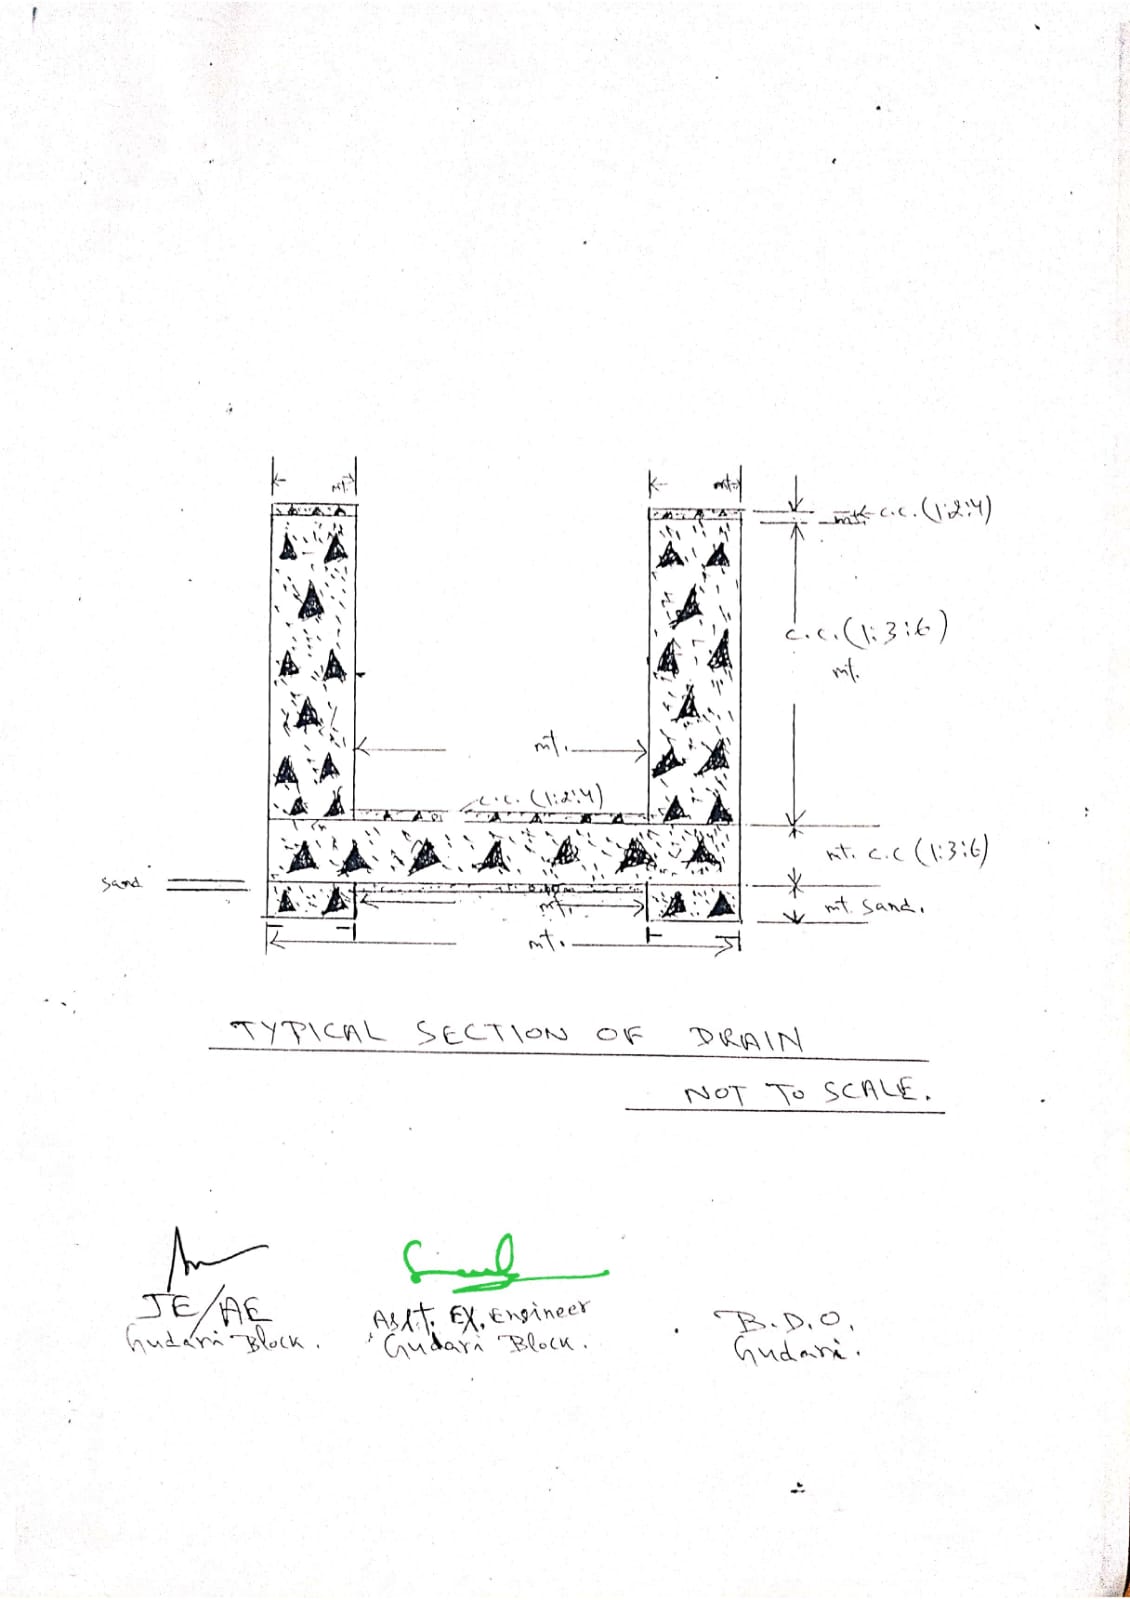 mt.
mt.
mt. c.c. (1:2:4)
c.c. (1:3:6)
mt.
mt.
c.c. (1:2:4)
mt. c.c (1:3:6)
sand
mt.
mt. sand.
mt.
TYPICAL SECTION OF DRAIN
NOT TO SCALE.
JE/AE
Gudari Block.
Asst. Ex. Engineer
Gudari Block.
B.D.O.
Gudari.